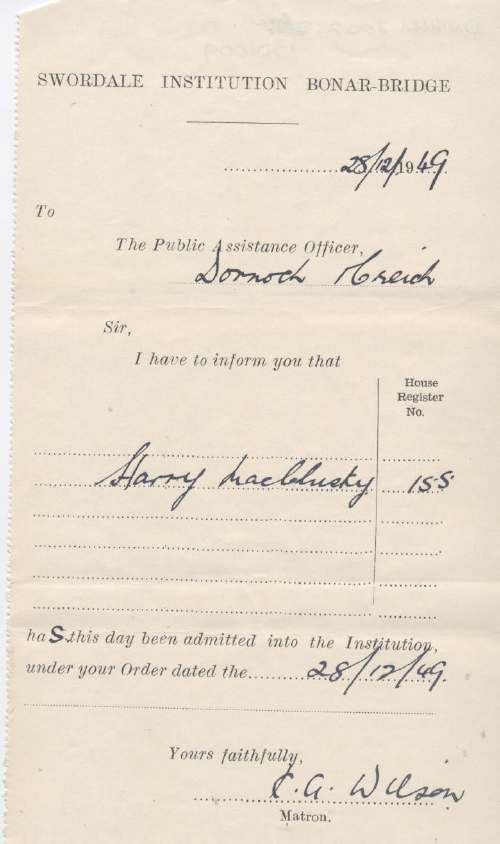 SWORDALE INSTITUTION BONAR-BRIDGE
28/12/1949
To
The Public Assistance Officer,
Dornoch & Creich
Sir,
I have to inform you that
House
Register
No.
Harry MacClusky 155
has this day been admitted into the Institution,
under your Order dated the 28/12/49.
Yours faithfully,
Wilson
Matron.